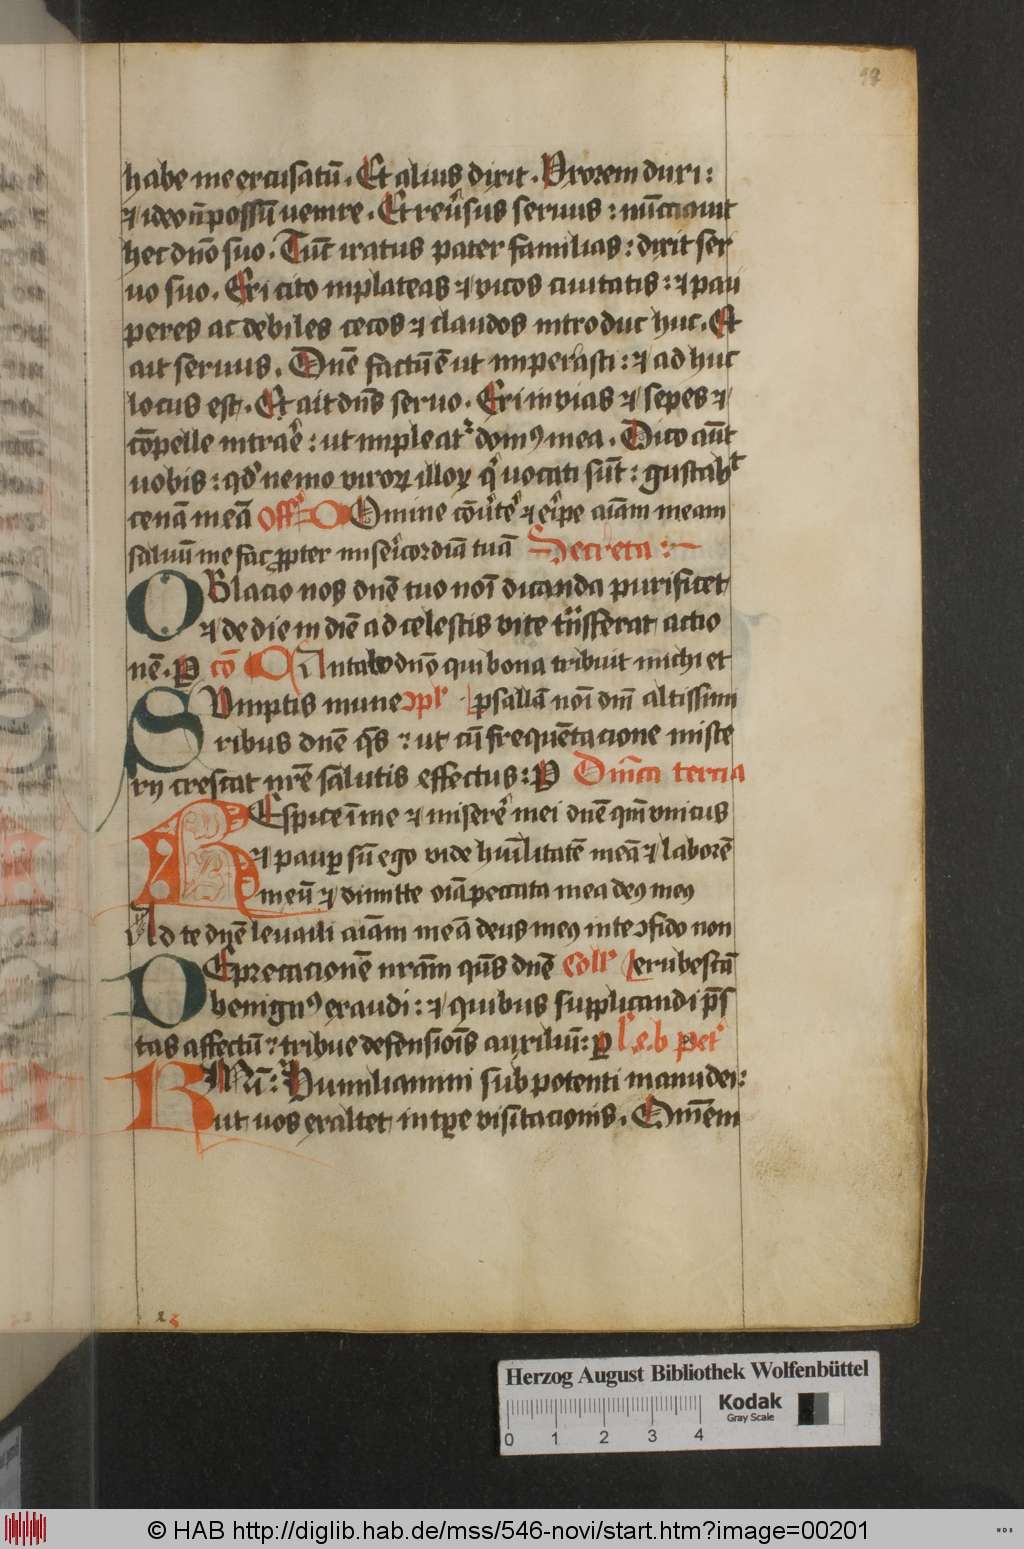 habe me excusatū. Et alius dixit. Vxorem duxi:
⁊ ideo n̄ possū venire. Et reūsus seruus: nūcciauit
hec dn̄o suo. Tūc iratus pater familias: dixit ser
uo suo. Exi cito in plateas ⁊ vicos ciuitatis: ⁊ pau
peres ac debiles cecos ⁊ claudos introduc huc. Et
ait seruus. Dn̄e factū ē ut imperasti: ⁊ ad huc
locus est. Et ait dn̄s seruo. Exi in vias ⁊ sepes ⁊
cōpelle intrare: ut impleat᷑ domꝯ mea. Dico aūt
uobis: qd nemo viroꝝ illoꝝ q̇ uocati sūt: gustabt
cenā meā off Domine cōuꝰtere ⁊ eripe aīam meam
saluū me fac ꝓpter misericordiā tuā Secreta
OBlacio nos dn̄e tuo noī dicanda purificet
⁊ de die in diē ad celestis vite trāsferat actio
nē. P cō Cantabo dn̄o qui bona tribuit michi et
SVmptis mune ↄpl psallā noī dn̄i altissimi
ribus dn̄e qs̄: ut cū frequētacione miste
rij crescat nr̄e salutis effectus: P Dn̄ica tercia
REspice ī me ⁊ miserere mei dn̄e qm̄ vnicus
⁊ paup̄ sū ego vide hūilitatē meā ⁊ laborē
meū ⁊ dimitte oīa peccata mea deꝯ meꝯ
Ad te dn̄e leuaui aīam meā deus meꝯ in te ↄfido non
DEprecacionē nr̄am qs̄ dn̄e Coll erubescā
benignꝯ exaudi: ⁊ quibus supplicandi p̄s
tas affectū: tribue defensiōis auxiliū: p l. e. b pet
KMī: Humiliamini sub potenti manu dei:
ut uos exaltet in tp̄e visitacionis. Om̄em
Herzog August Bibliothek Wolfenbüttel
Kodak
Gray Scale
0 1 2 3 4
© HAB http://diglib.hab.de/mss/546-novi/start.htm?image=00201